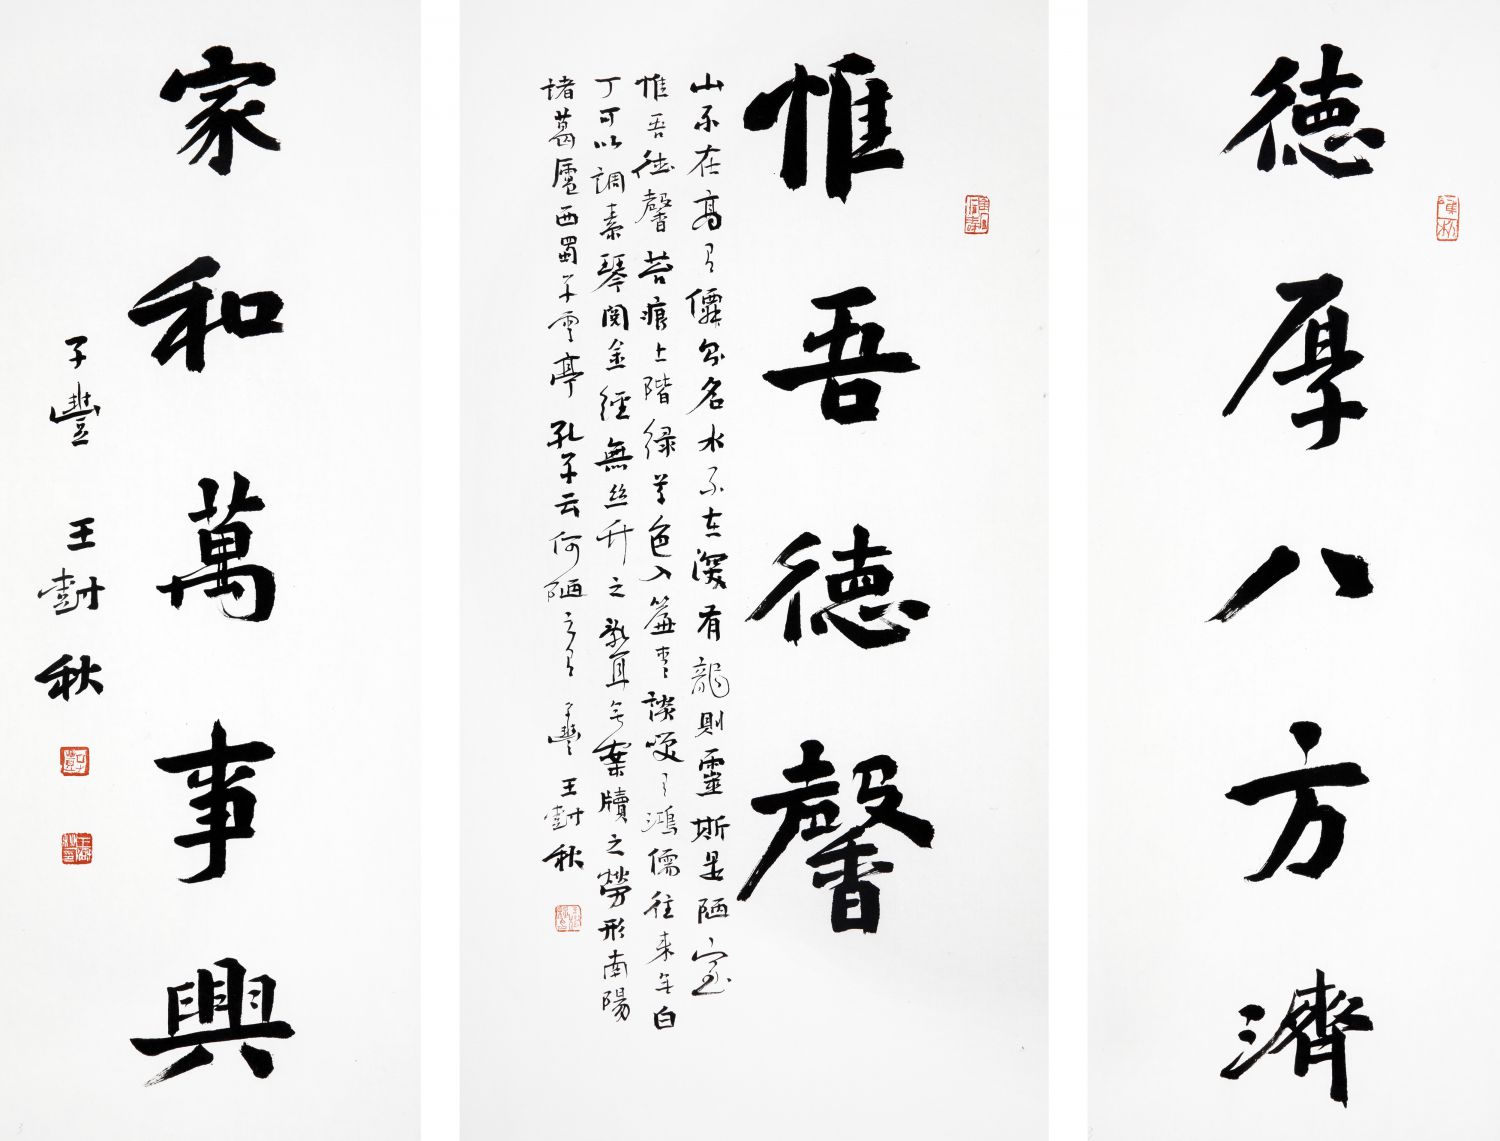 德厚八方濟
惟吾德馨
山不在高有僊則名水不在深有龍則靈斯是陋室
惟吾德馨苔痕上階綠草色入簾青談笑有鴻儒往來無白
丁可以調素琴閱金經無絲竹之亂耳無案牘之勞形南陽
諸葛廬西蜀子雲亭孔子云何陋之有 子豐王封秋
家和萬事興
子豐 王封秋